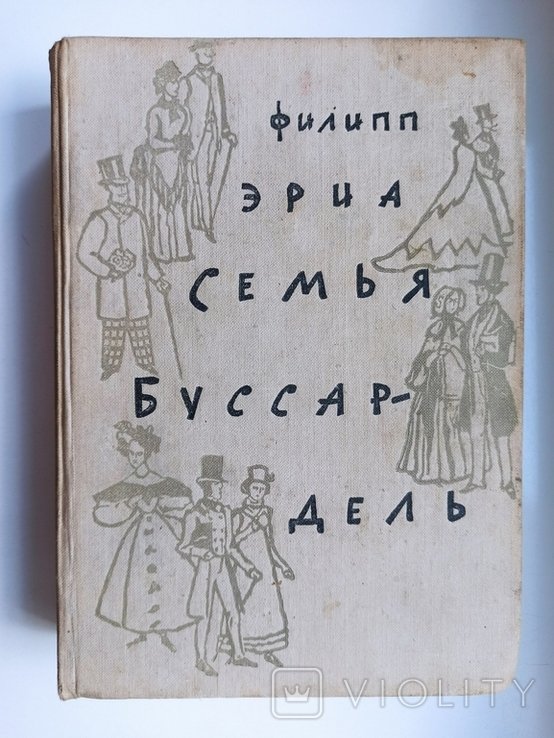 ФИЛИПП
ЭРИА
СЕМЬЯ
БУССАР-
ДЕЛЬ
VIOLITY